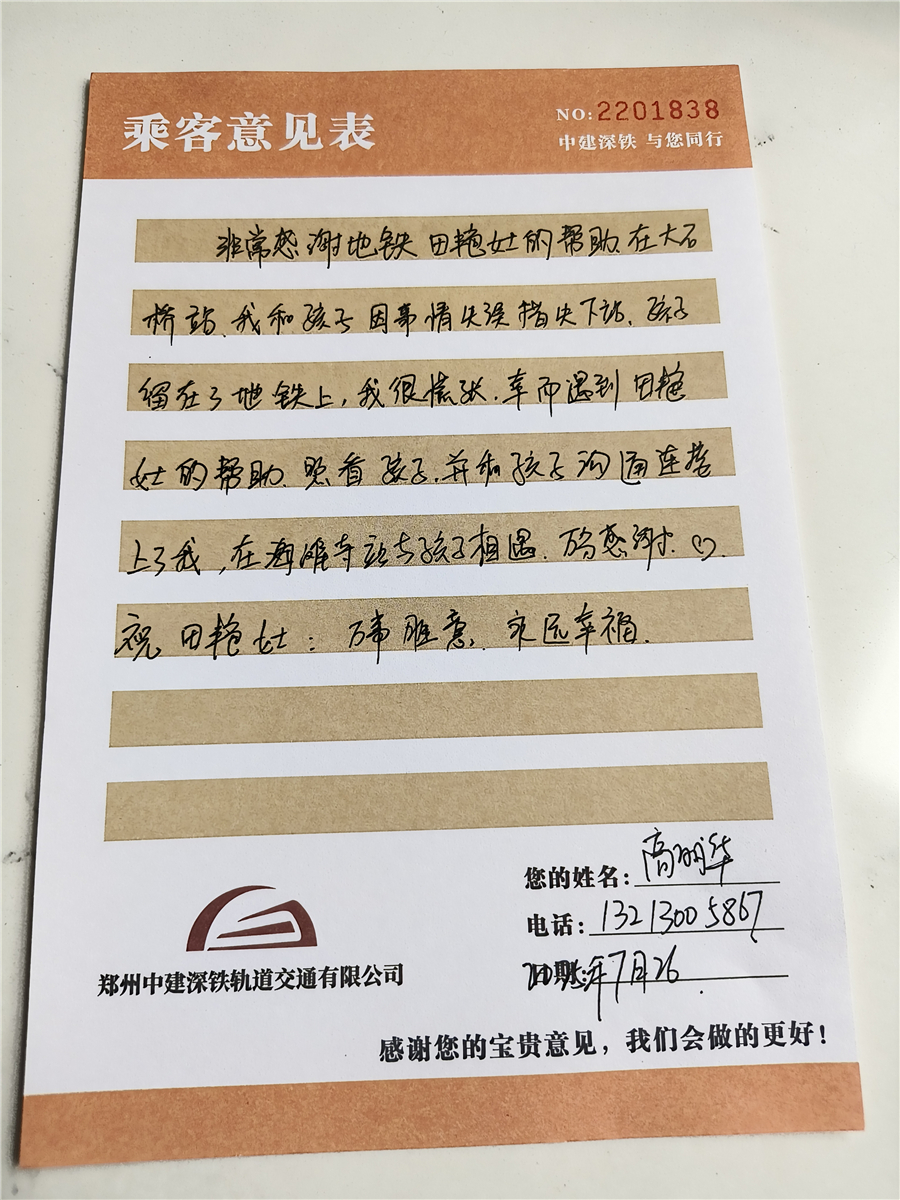 乘客意见表
NO:2201838
中建深铁 与您同行
非常感谢地铁田艳灶的帮助.在大石
桥站.我和孩子因事情失误错失下站.孩子
留在了地铁上,我很慌张.幸而遇到田艳
灶的帮助.照看孩子.并和孩子沟通连营
上了我,在海滩寺站与孩子相遇.万分感谢.♡.
祝田艳灶:万事胜意.永远幸福.
您的姓名:高明华
电话:13213005867
日期:年7月26.
郑州中建深铁轨道交通有限公司
感谢您的宝贵意见,我们会做的更好!